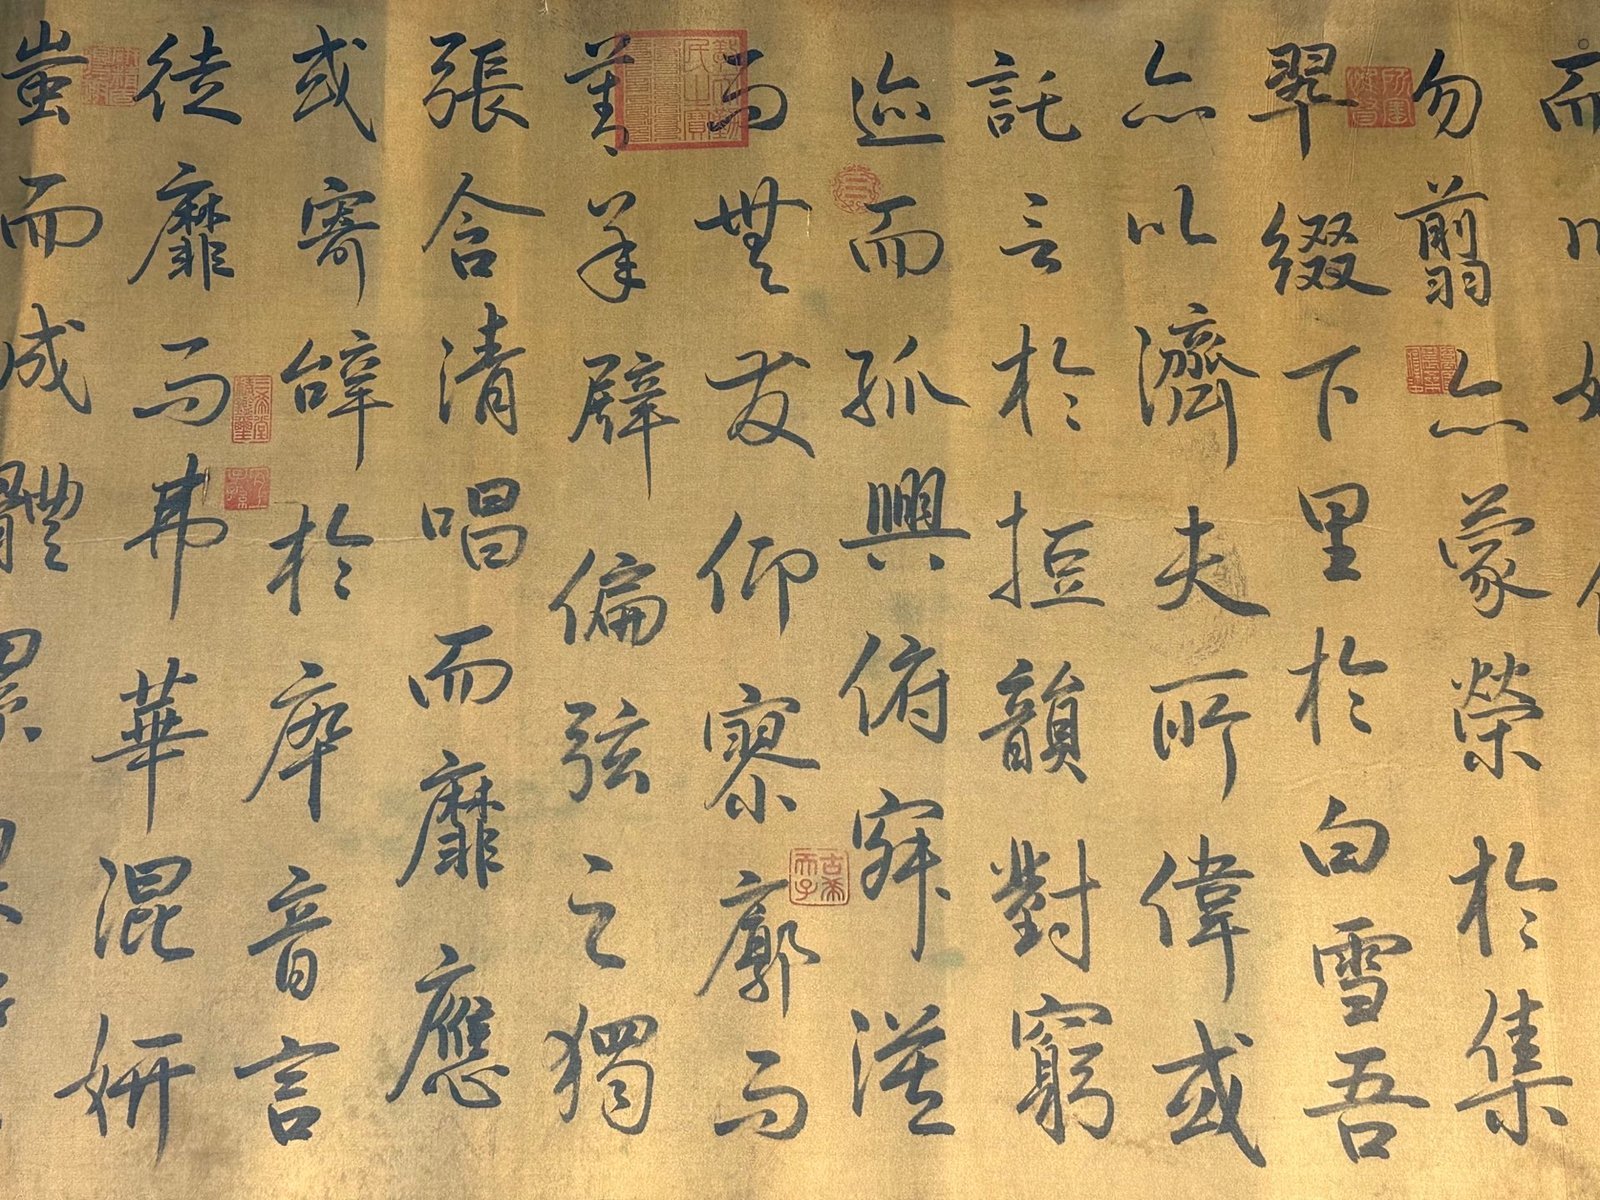 而
勿翦亦蒙榮於集
翠綴下里於白雪吾
亦以濟夫所偉或
託言於短韻對窮
迹而孤興俯寂漠
而無友仰寥廓而
莫承譬偏弦之獨
張含清唱而靡應
或寄辭於瘁音言
徒靡而弗華混妍
蚩而成體累
古希天子
三希堂精鑑璽
宜子孫